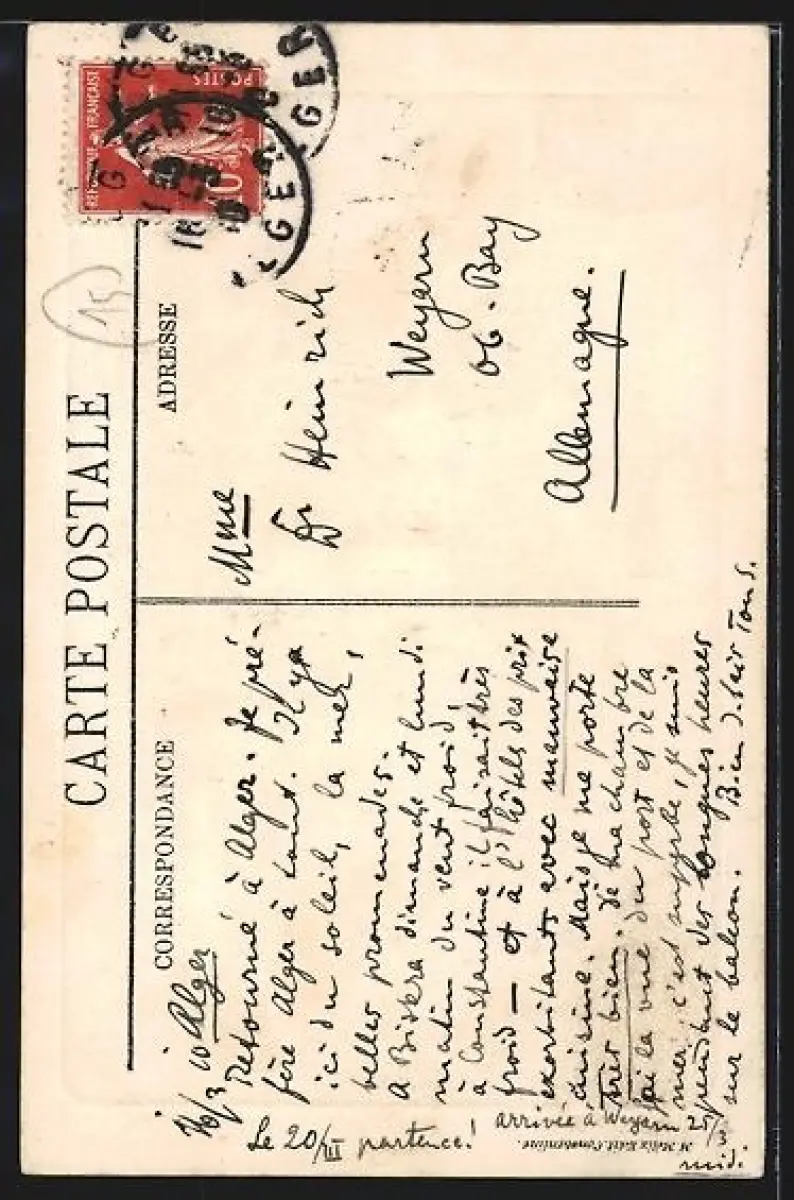 CARTE POSTALE
CORRESPONDANCE
ADRESSE
REPUBLIQUE FRANÇAISE
POSTES
10
15
16/3 10 Alger
Retourné à Alger. Je pré-
fère Alger à tout. Il y a
ici du soleil, la mer,
belles promenades.
A Biskra dimanche et lundi
matin du vent froid,
à Constantine il faisait très
froid — et à l'hôtels des prix
exorbitants avec mauvaise
cuisine. Mais je me porte
très bien. De ma chambre
j'ai la vue du port et de la
mer, c'est superbe, je suis
pendant des longues heures
sur le balcon. Bien d. bais. Tous.
Le 20/III partence!
arrivée à Weyarn 25/3
midi
Mme
Dr Heinrich
Weyarn
Ob. Bay
Allemagne.